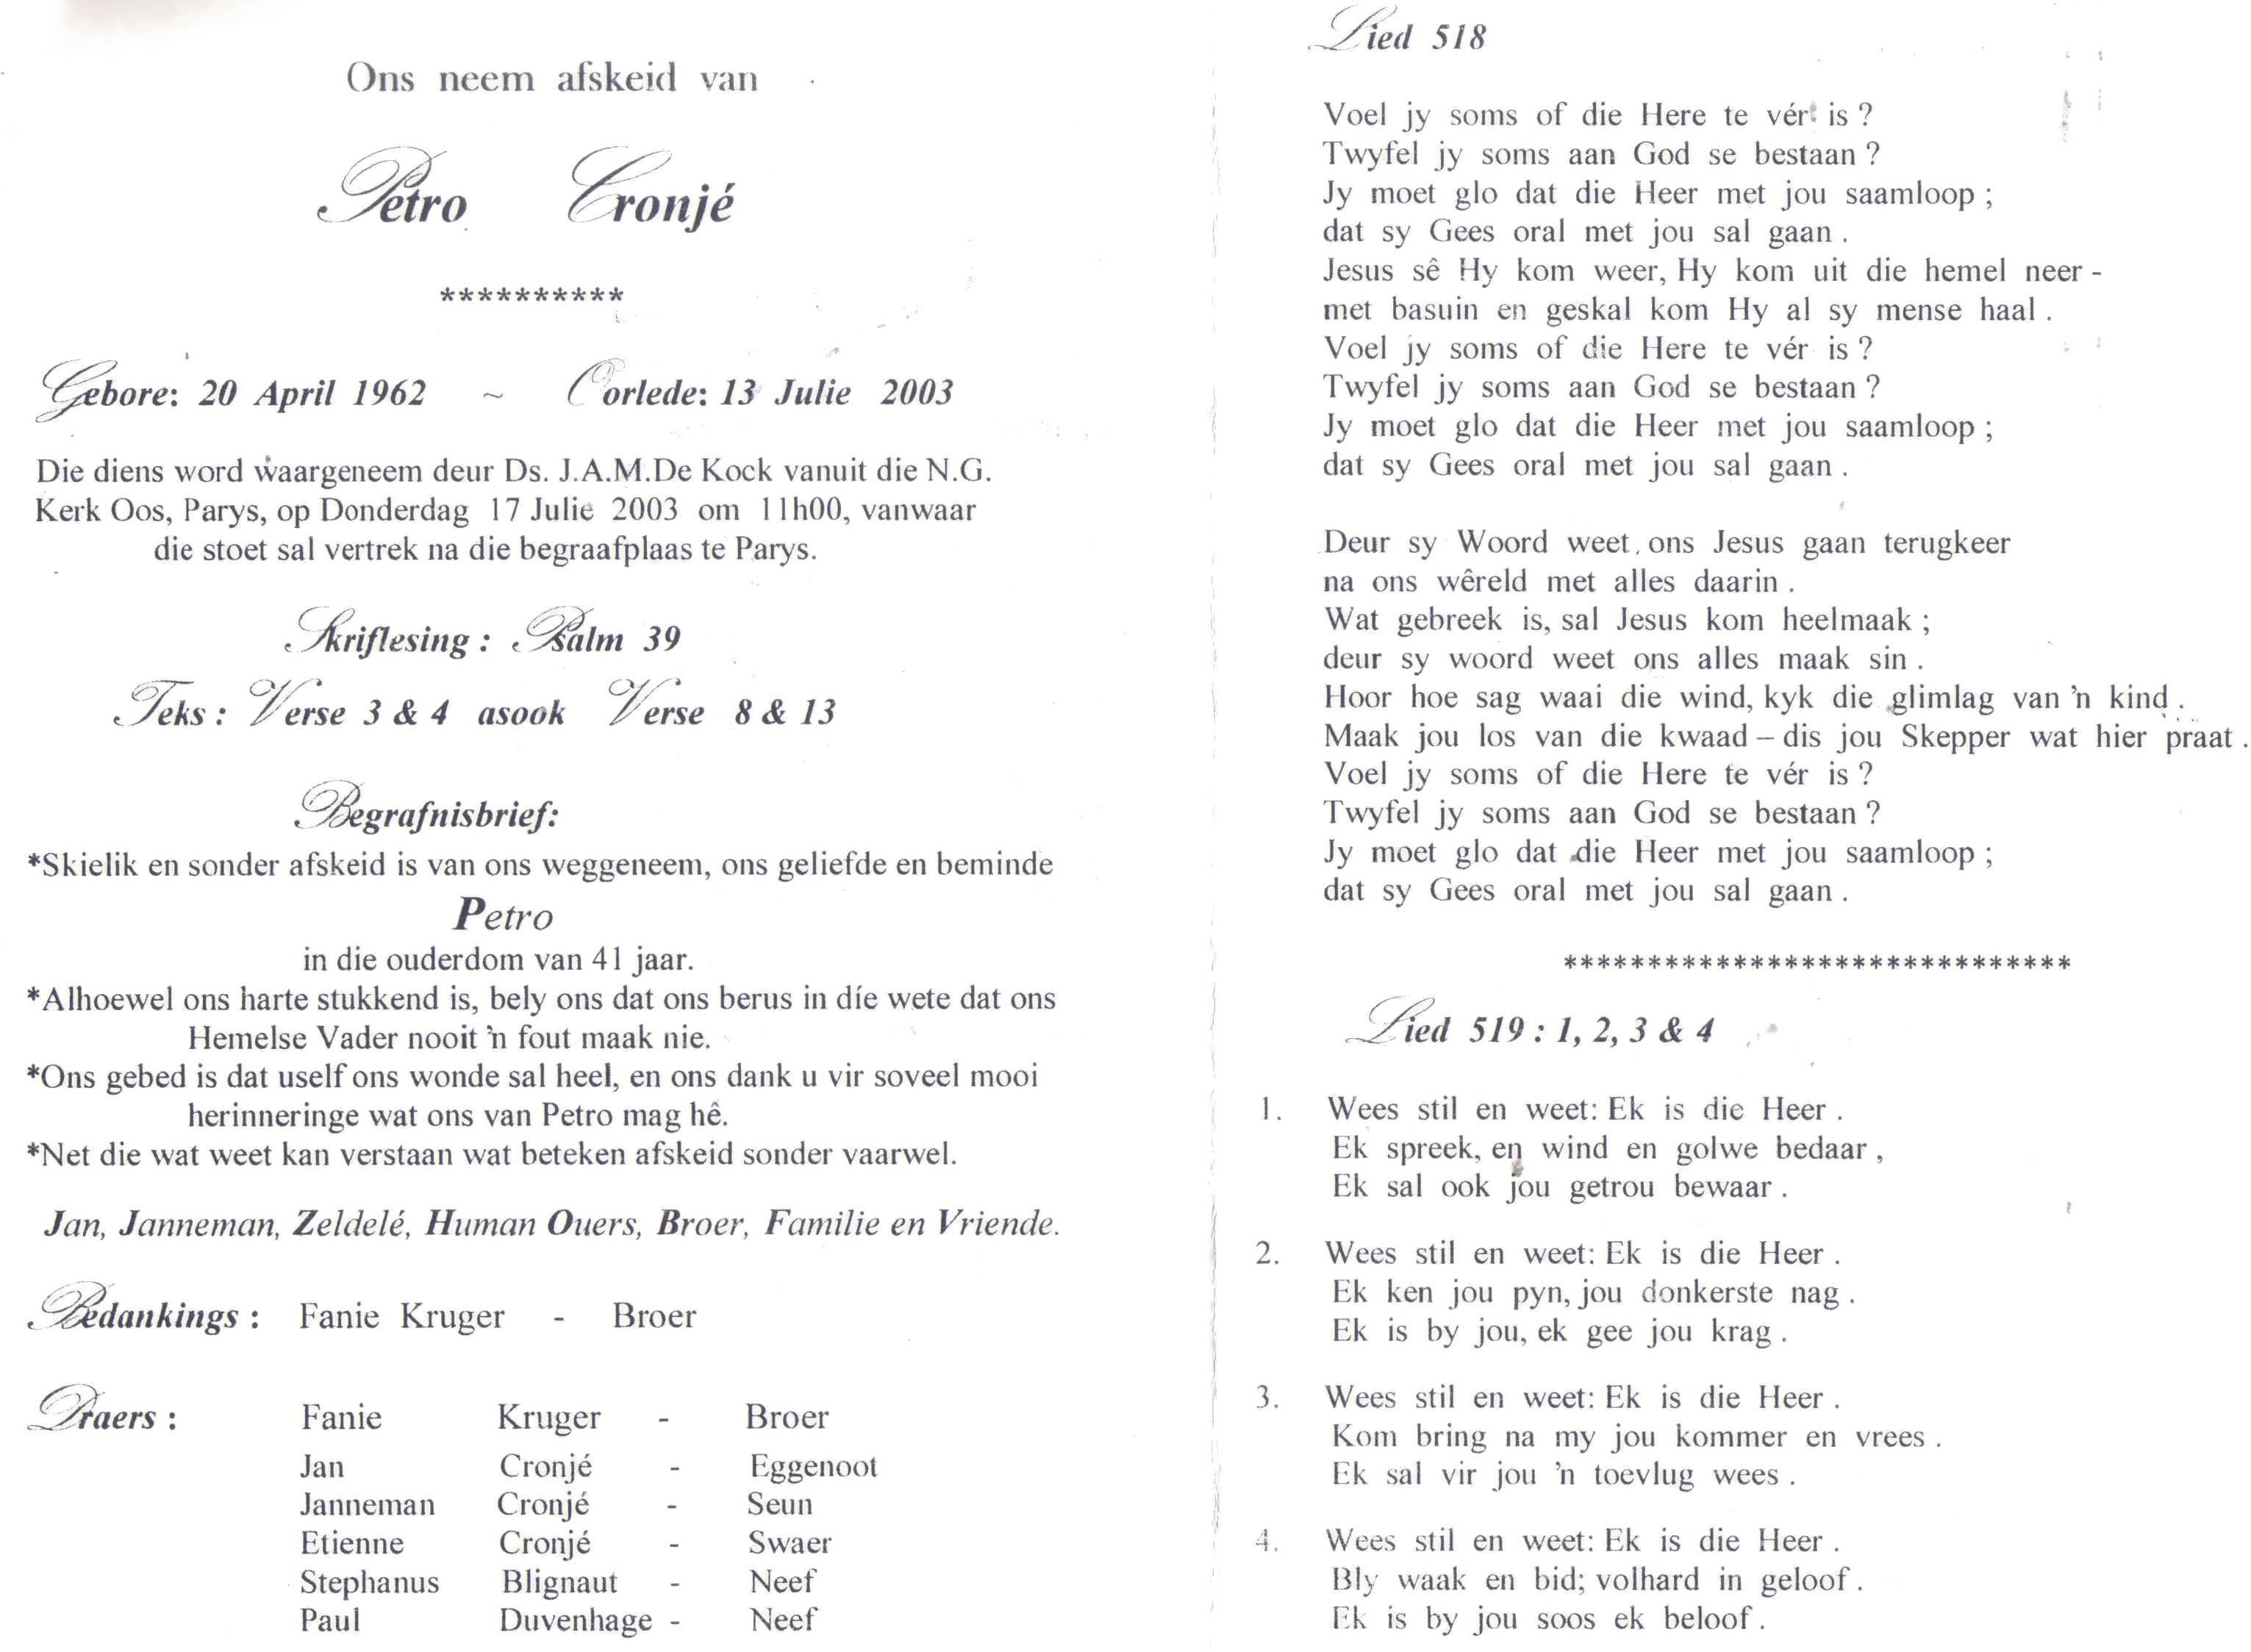 Ons neem afskeid van
Petro Cronjé
**********
Gebore: 20 April 1962 ~ Oorlede: 13 Julie 2003
Die diens word waargeneem deur Ds. J.A.M.De Kock vanuit die N.G.
Kerk Oos, Parys, op Donderdag 17 Julie 2003 om 11h00, vanwaar
die stoet sal vertrek na die begraafplaas te Parys.
Skriflesing : Psalm 39
Teks : Verse 3 & 4 asook Verse 8 & 13
Begrafnisbrief:
*Skielik en sonder afskeid is van ons weggeneem, ons geliefde en beminde
Petro
in die ouderdom van 41 jaar.
*Alhoewel ons harte stukkend is, bely ons dat ons berus in díe wete dat ons
Hemelse Vader nooit 'n fout maak nie.
*Ons gebed is dat uself ons wonde sal heel, en ons dank u vir soveel mooi
herinneringe wat ons van Petro mag hê.
*Net die wat weet kan verstaan wat beteken afskeid sonder vaarwel.
Jan, Janneman, Zeldelé, Human Ouers, Broer, Familie en Vriende.
Bedankings : Fanie Kruger - Broer
Draers : Fanie Kruger - Broer
Jan Cronjé - Eggenoot
Janneman Cronjé - Seun
Etienne Cronjé - Swaer
Stephanus Blignaut - Neef
Paul Duvenhage - Neef
Lied 518
Voel jy soms of die Here te vér is ?
Twyfel jy soms aan God se bestaan ?
Jy moet glo dat die Heer met jou saamloop ;
dat sy Gees oral met jou sal gaan .
Jesus sê Hy kom weer, Hy kom uit die hemel neer -
met basuin en geskal kom Hy al sy mense haal .
Voel jy soms of die Here te vér is ?
Twyfel jy soms aan God se bestaan ?
Jy moet glo dat die Heer met jou saamloop ;
dat sy Gees oral met jou sal gaan .
Deur sy Woord weet ons Jesus gaan terugkeer
na ons wêreld met alles daarin .
Wat gebreek is, sal Jesus kom heelmaak ;
deur sy woord weet ons alles maak sin .
Hoor hoe sag waai die wind, kyk die glimlag van 'n kind .
Maak jou los van die kwaad – dis jou Skepper wat hier praat .
Voel jy soms of die Here te vér is ?
Twyfel jy soms aan God se bestaan ?
Jy moet glo dat die Heer met jou saamloop ;
dat sy Gees oral met jou sal gaan .
******************************
Lied 519 : 1, 2, 3 & 4
1. Wees stil en weet: Ek is die Heer .
Ek spreek, en wind en golwe bedaar ,
Ek sal ook jou getrou bewaar .
2. Wees stil en weet: Ek is die Heer .
Ek ken jou pyn, jou donkerste nag .
Ek is by jou, ek gee jou krag .
3. Wees stil en weet: Ek is die Heer .
Kom bring na my jou kommer en vrees .
Ek sal vir jou 'n toevlug wees .
4. Wees stil en weet: Ek is die Heer .
Bly waak en bid; volhard in geloof .
Ek is by jou soos ek beloof .